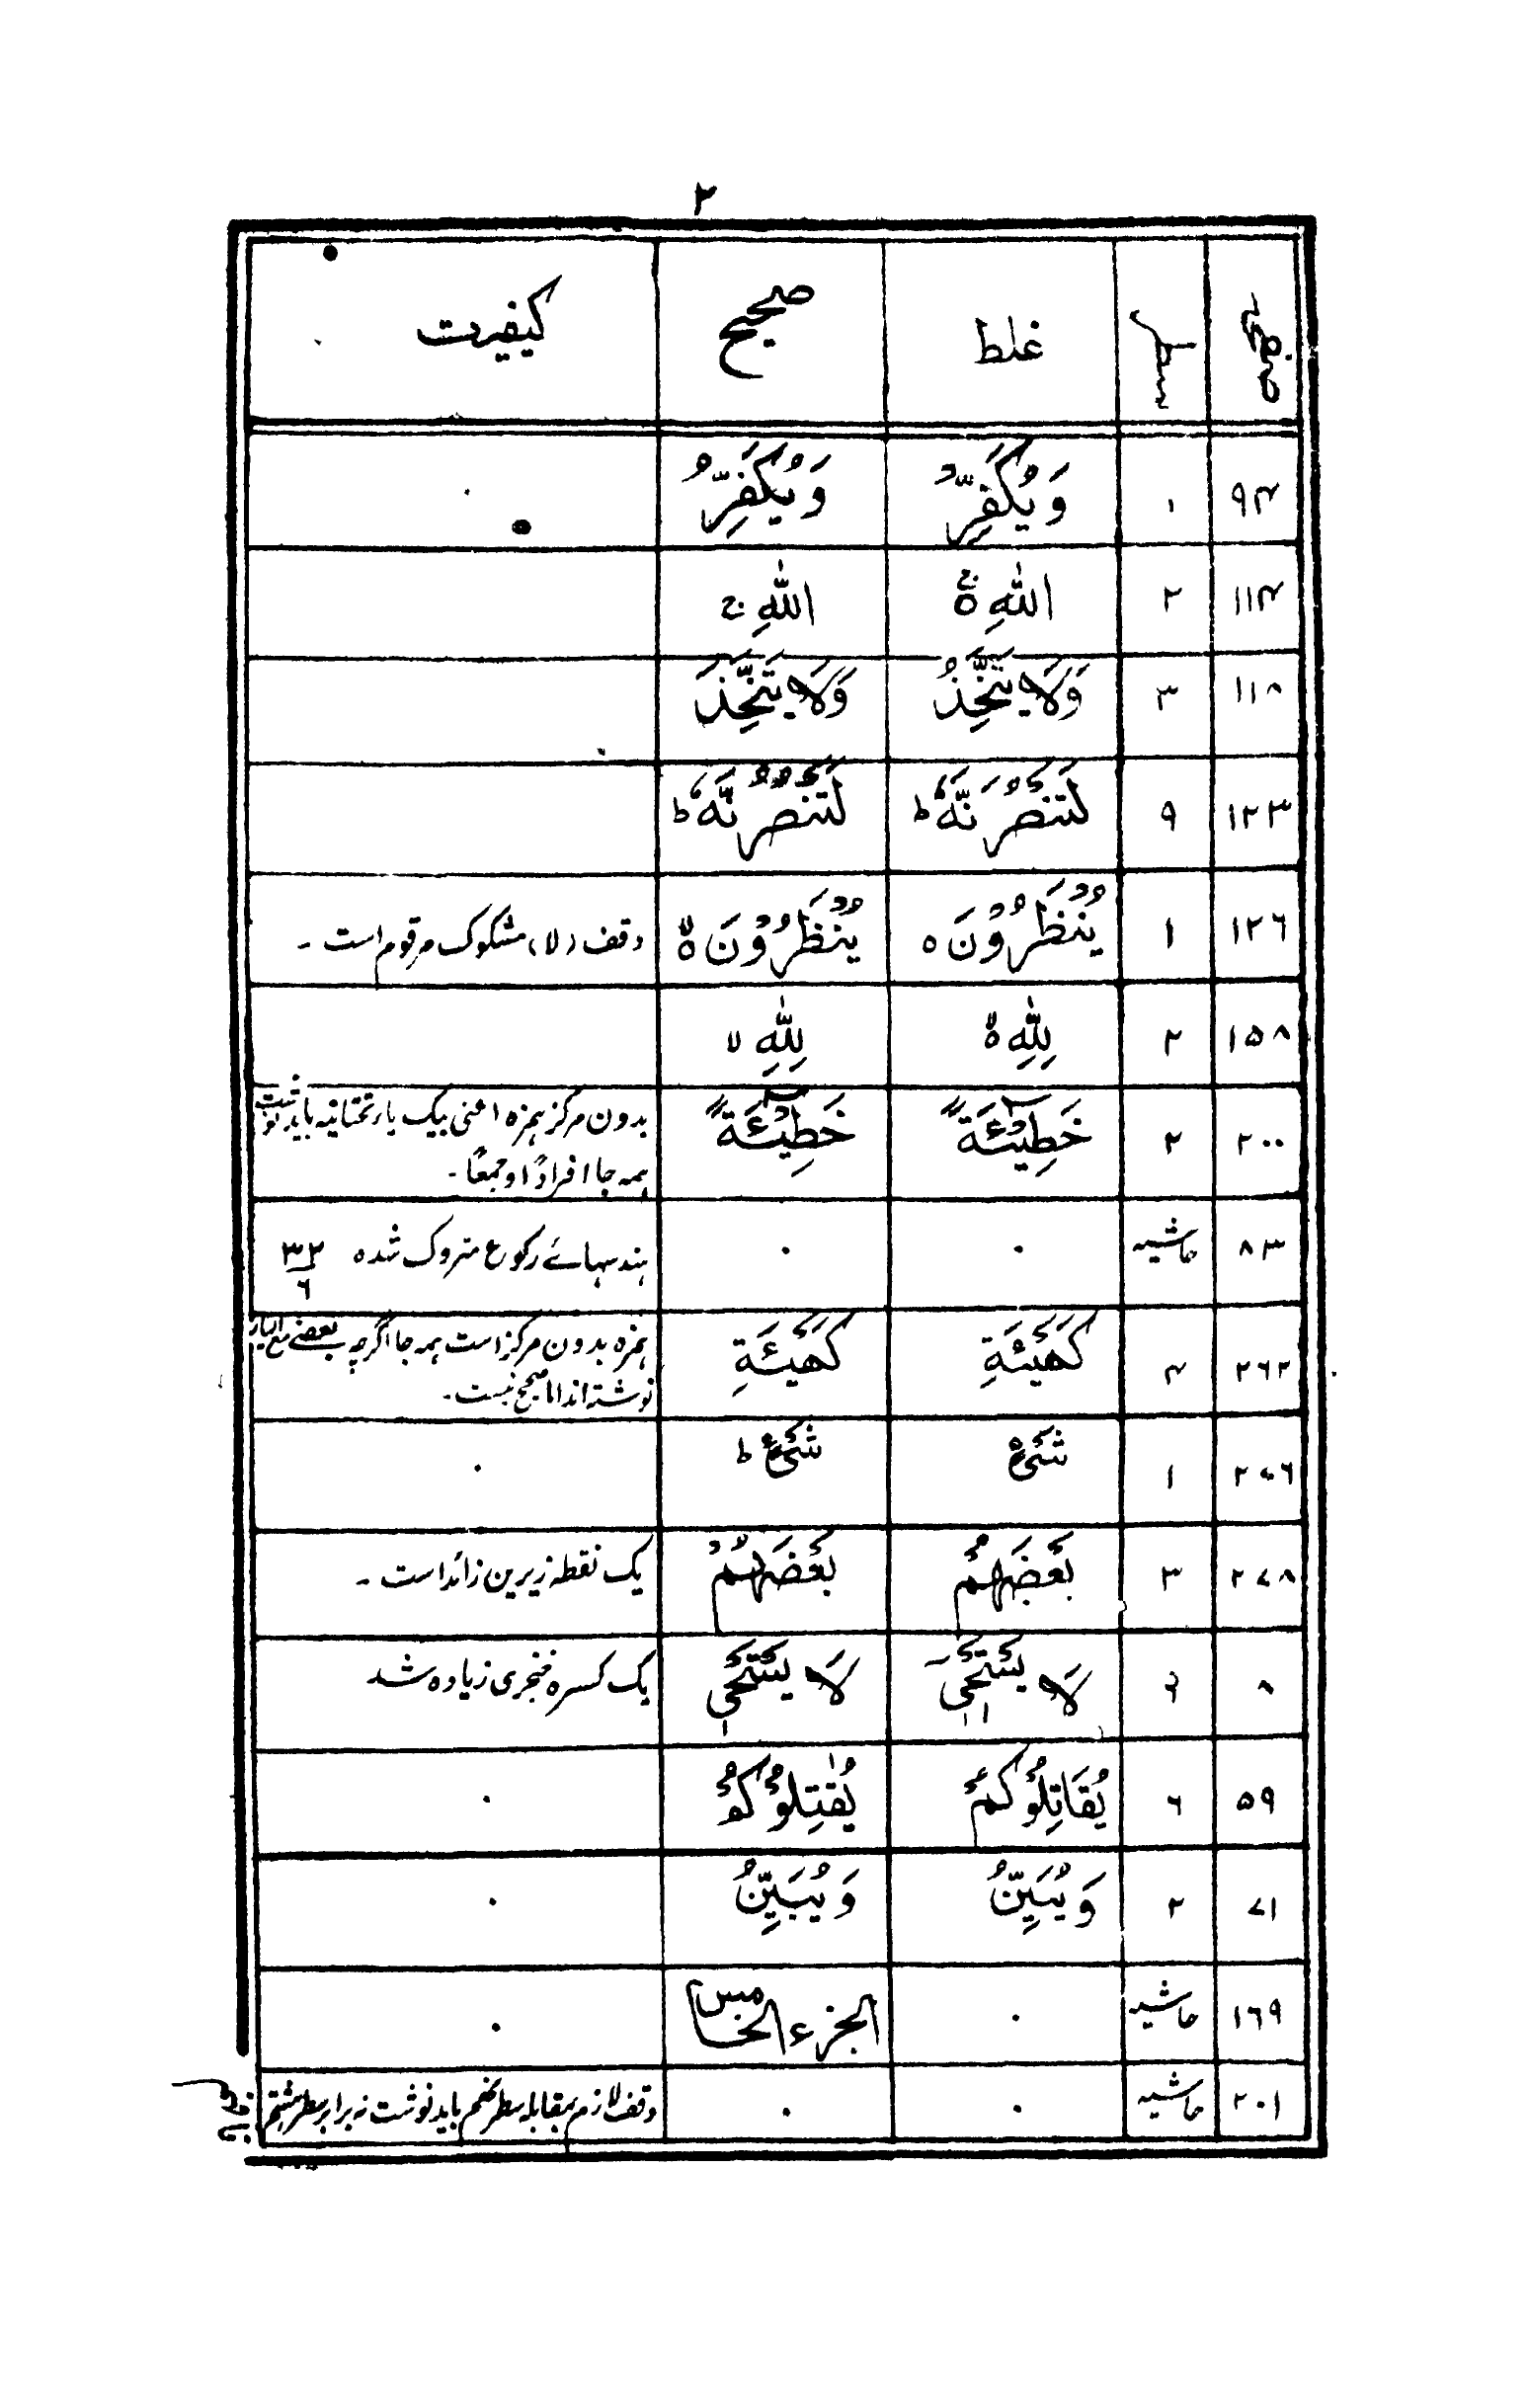 ۲
صفحہ سطر غلط صحیح کیفیت
۹۴ ۱ وَيُكَفِّرْ وَيُكَفِّرُ ۰
۱۱۴ ۲ اللّٰهِ ۃج اللّٰهِ ج
۱۱۸ ۳ وَلَا يَتَّخِذُ وَلَا يَتَّخِذَ
۱۲۳ ۹ لَتَنْصُرَنَّهٗ ط لَتَنْصُرُنَّهٗ ط
۱۲۶ ۱ يُنْظَرُوْنَ ہ يُنْظَرُوْنَ ہلا وقف (لا) مشکوک مرقوم است ۔
۱۵۸ ۲ لِلّٰهِ ہلا لِلّٰهِ لا
۲۰۰ ۲ خَطِيْٓئَةً خَطِيْٓئَةً بدون مرکز ہمزہ اعنی بیک یاء تحتانیہ باید نوشت
ہمہ جا افرادًا و جمعًا ۔
۸۳ حاشیہ ۰ ۰ ہندسہائے رکوع متروک شدہ ۳۲
۶
۲۶۲ ۴ كَهَيْئَةِ كَهَيْئَةِ ہمزہ بدون مرکز است ہمہ جا اگرچہ بعضے مع الیاء
نوشتہ اند اما صحیح نیست ۔
۲۷۶ ۱ شَيْءٍ شَيْءٍ ط ۰
۲۷۸ ۳ بَعْضَهُمْ بَعْضَهُمْ یک نقطہ زیرین زائد است ۔
۸ ۶ لَا يَسْتَحْيٖ لَا يَسْتَحْيٖ یک کسرہ خنجری زیادہ شد
۵۹ ۶ يُقَاتِلُوْكُمْ يُقٰتِلُوْكُمْ ۰
۷۱ ۲ وَيُبَيِّنُ وَيُبَيِّنُ ۰
۱۶۹ حاشیہ ۰ الجزء الخامس ۰
۲۰۱ حاشیہ ۰ ۰ وقف لازم بمقابلہ سطر نہم باید نوشت نہ برابر سطر ہشتم